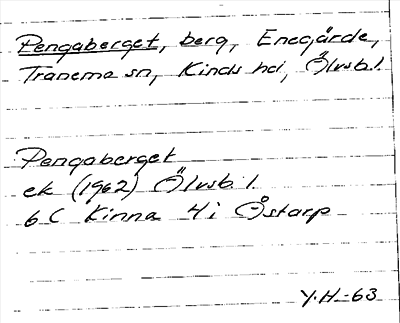 Pengaberget, berg, Enegärde,
Tranemo sn, Kinds hd, Älvsb. l.
Pengaberget
ek (1962) Älvsb. l.
6 C Kinna 4 i Åstarp
Y.H.-63